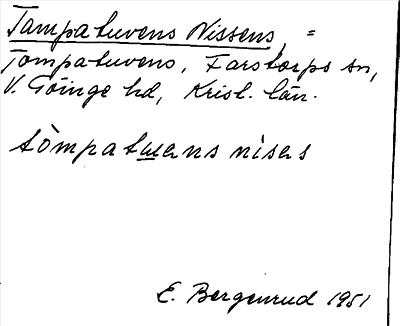 Tampatuvens Nissens, =
Tompatuvens, Farstorps sn,
V. Göinge hd, Krist. län.
tòmpatuvens nises
E. Bergenrud 1951